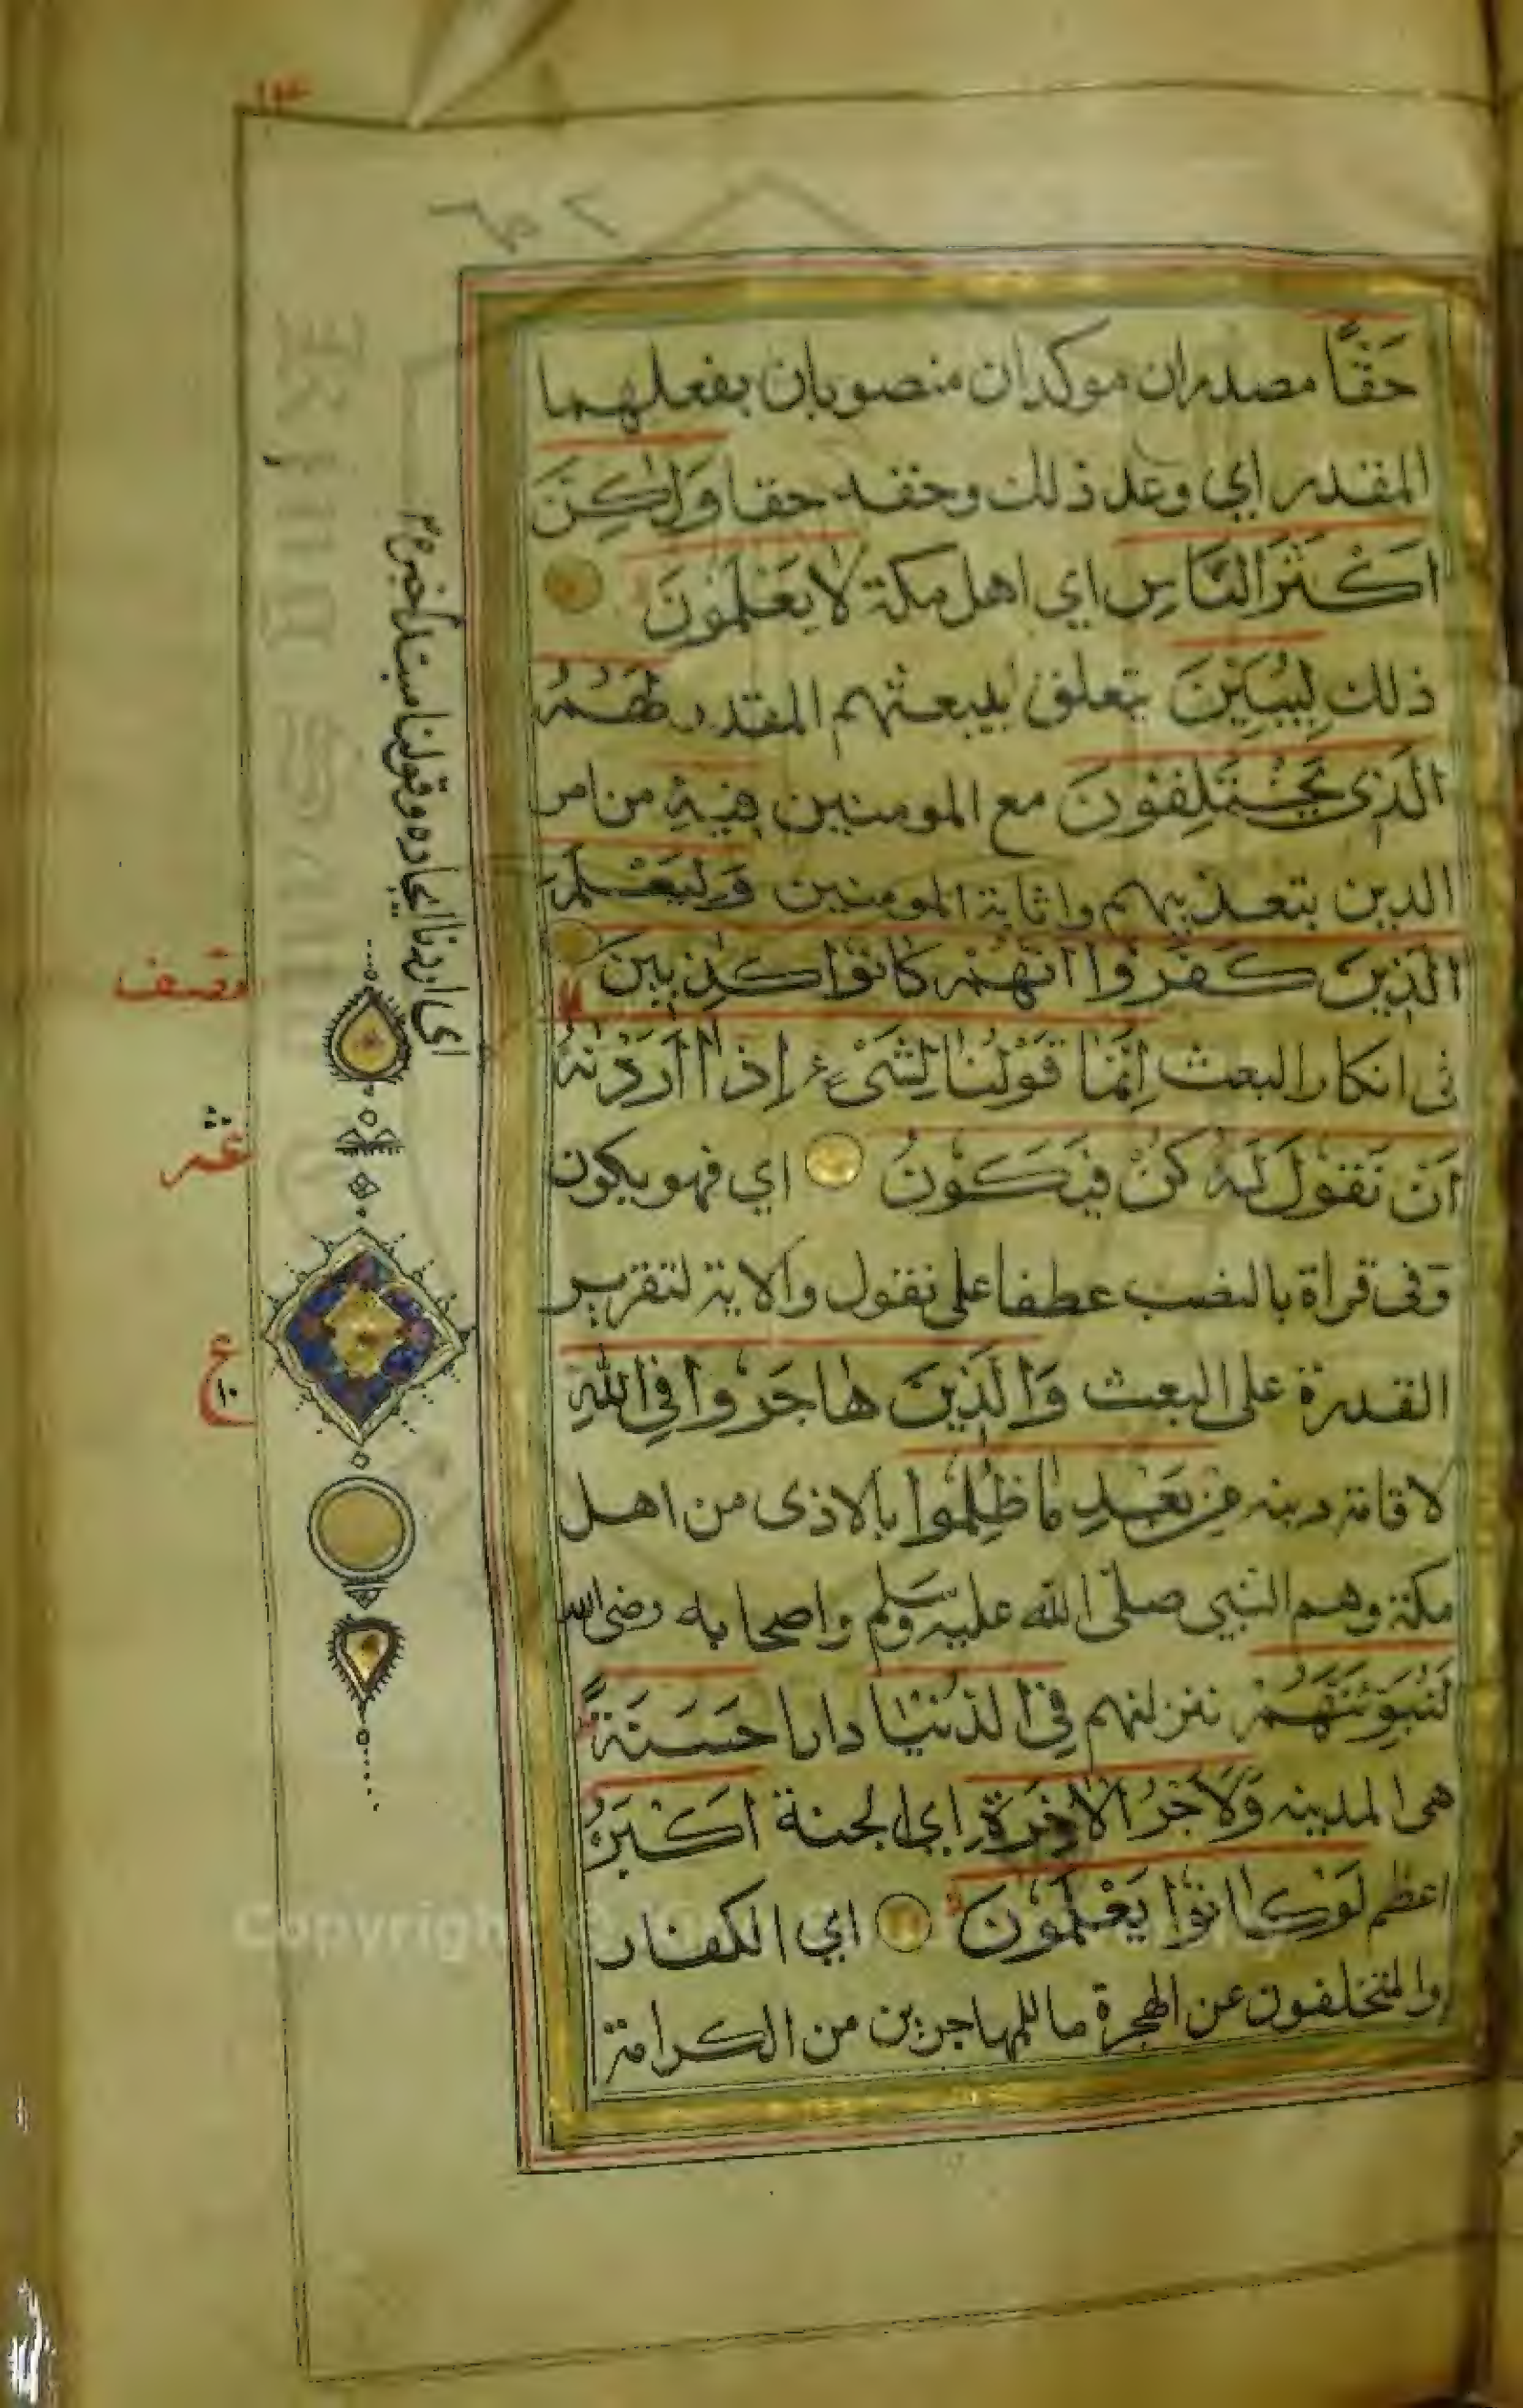 ١٣
حَقًّا مصدران موكدان منصوبان بفعلهما
المقدر اي وعد ذلك وحقه حقا وَلٰكِنَّ
اَكْثَرَ النَّاسِ اي اهل مكة لَا يَعْلَمُوْنَ
ذلك لِيُبَيِّنَ يتعلق بيبعثهم المقدر لَهُمُ
الَّذِي يَخْتَلِفُوْنَ مع المومنين فِيْهِ من امر
الدين بتعذيبهم واثابة المومنين وَلِيَعْلَمَ
الَّذِيْنَ كَفَرُوْا اَنَّهُمْ كَانُوْا كٰذِبِيْنَ
في انكار البعث اِنَّمَا قَوْلُنَا لِشَيْءٍ اِذَا اَرَدْنٰهُ
اَنْ نَقُوْلَ لَهُ كُنْ فَيَكُوْنُ اي فهو يكون
وفي قراة بالنصب عطفا على نقول والاية لتقرير
القدرة على البعث وَالَّذِيْنَ هَاجَرُوْا فِي اللّٰهِ
لاقامة دينه مِنْ بَعْدِ مَا ظُلِمُوْا بالاذى من اهل
مكة وهم النبي صلى الله عليه وسلم واصحابه رضي الله
لَنُبَوِّئَنَّهُمْ ننزلنهم فِي الدُّنْيَا دارا حَسَنَةً
هي المدينه وَلَاَجْرُ الْاٰخِرَةِ اي الجنة اَكْبَرُ
اعظم لَوْ كَانُوْا يَعْلَمُوْنَ اي الكفار
والمتخلفون عن الهجرة ما للمهاجرين من الكرامة
اي اردنا ايجاده وقولنا مبتدا خبره
نصف
ع
١٠
Copyright